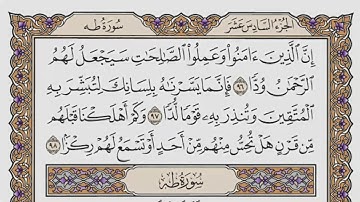 سُورَةُ طه
الجُزْءُ السَّادِسَ عَشَرَ
إِنَّ ٱلَّذِينَ ءَامَنُواْ وَعَمِلُواْ ٱلصَّٰلِحَٰتِ سَيَجۡعَلُ لَهُمُ
ٱلرَّحۡمَٰنُ وُدّٗا ٩٦ فَإِنَّمَا يَسَّرۡنَٰهُ بِلِسَانِكَ لِتُبَشِّرَ بِهِ
ٱلۡمُتَّقِينَ وَتُنذِرَ بِهِۦ قَوۡمٗا لُّدّٗا ٩٧ وَكَمۡ أَهۡلَكۡنَا قَبۡلَهُم
مِّن قَرۡنٍ هَلۡ تُحِسُّ مِنۡهُم مِّنۡ أَحَدٍ أَوۡ تَسۡمَعُ لَهُمۡ رِكۡزَۢا ٩٨
سُورَةُ طه